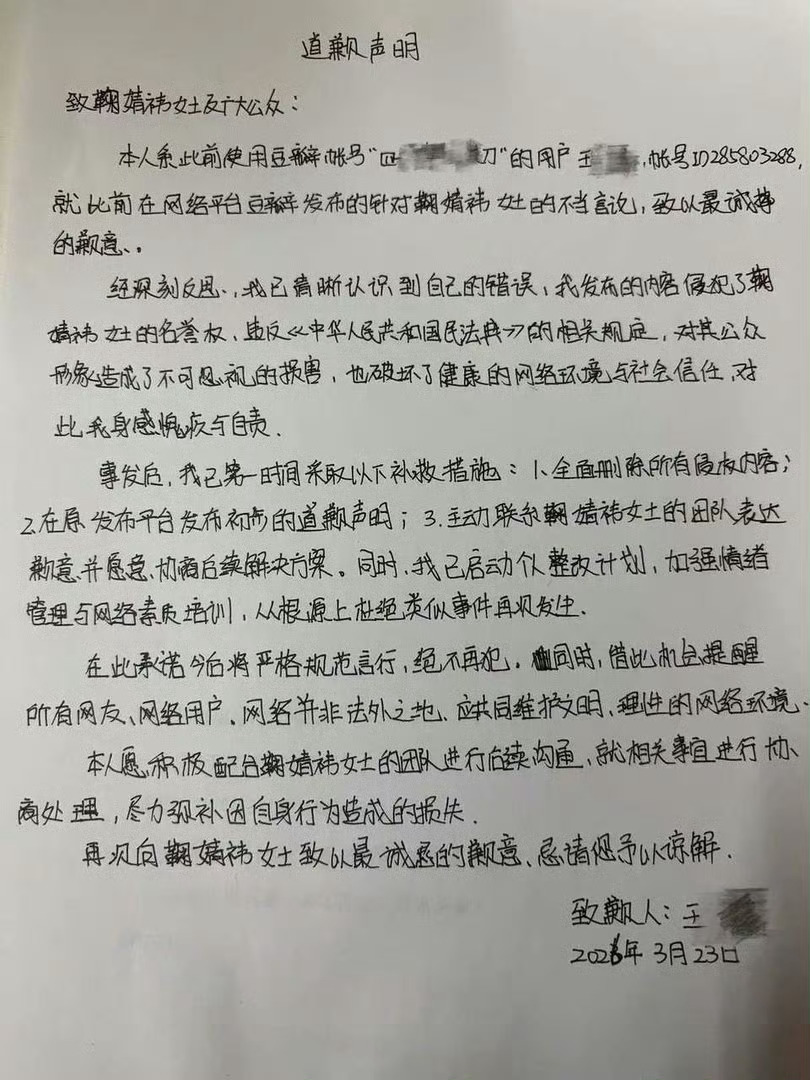 道歉声明
致鞠婧祎女士及广大公众：
本人系此前使用豆瓣帐号“四 切”的用户王 ，帐号ID285803288，
就此前在网络平台豆瓣发布的针对鞠婧祎女士的不当言论，致以最诚挚
的歉意。
经深刻反思，我已清晰认识到自己的错误，我发布的内容侵犯了鞠
婧祎女士的名誉权，违反《中华人民共和国民法典》的相关规定，对其公众
形象造成了不可忽视的损害，也破坏了健康的网络环境与社会信任，对
此我身感愧疚与自责.
事发后，我已第一时间采取以下补救措施：1.全面删除所有侵权内容；
2.在原发布平台发布初步的道歉声明；3.主动联系鞠婧祎女士的团队表达
歉意并愿意协商后续解决方案。同时，我已启动个人整改计划，加强情绪
管理与网络素质培训，从根源上杜绝类似事件再次发生.
在此承诺今后将严格规范言行，绝不再犯.同时，借此机会提醒
所有网友、网络用户、网络并非法外之地、应共同维护文明、理性的网络环境.
本人愿积极配合鞠婧祎女士的团队进行后续沟通，就相关事宜进行协
商处理，尽力弥补因自身行为造成的损失.
再次向鞠婧祎女士致以最诚恳的歉意、恳请您予以谅解.
致歉人：王
2026年3月23日